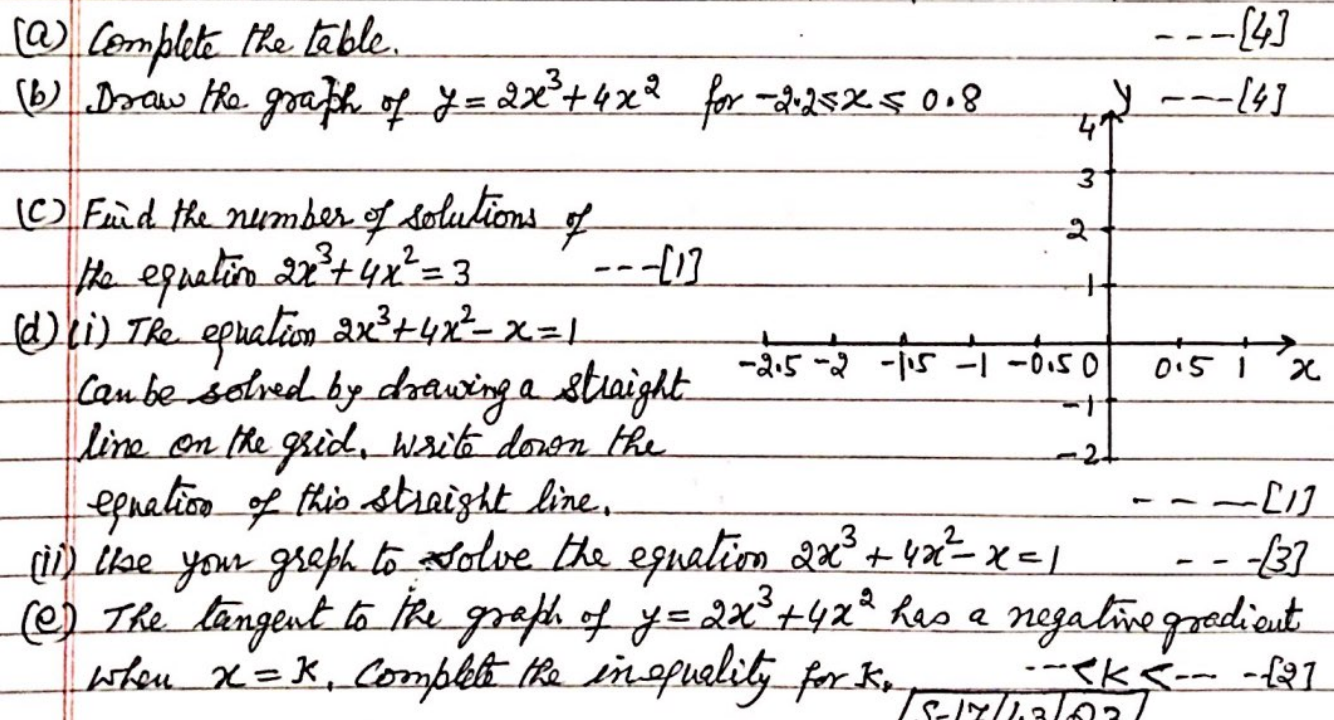 (a) Complete the table. ---[4]
(b) Draw the graph of y = 2x³ + 4x² for -2.2 ≤ x ≤ 0.8 ---[4]
y
4
3
(c) Find the number of solutions of
2
the equation 2x³ + 4x² = 3 ---[1]
1
(d) (i) The equation 2x³ + 4x² - x = 1
-2.5 -2 -1.5 -1 -0.5 0 0.5 1 x
can be solved by drawing a straight
-1
line on the grid. Write down the
-2
equation of this straight line. ---[1]
(ii) Use your graph to solve the equation 2x³ + 4x² - x = 1 ---[3]
(e) The tangent to the graph of y = 2x³ + 4x² has a negative gradient
when x = K. Complete the inequality for K. --- < K < --- -[2]
S-17/43/Q3